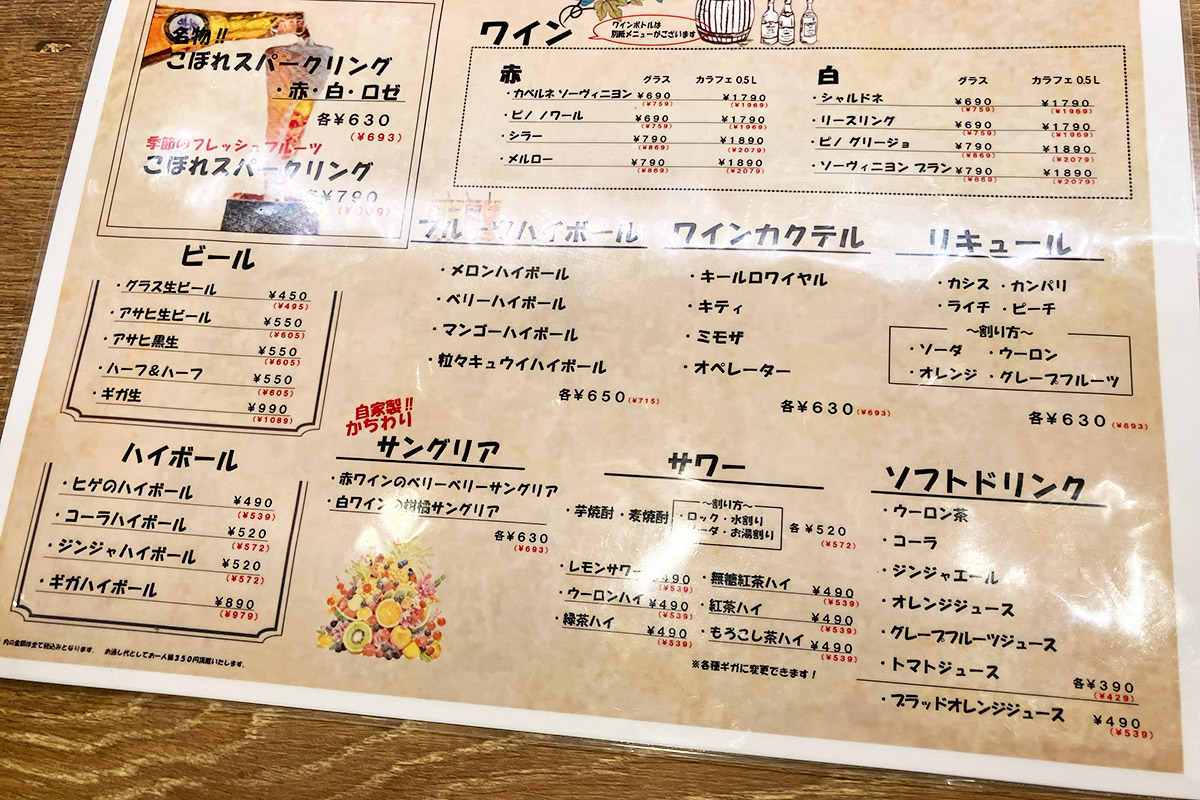 名物!!
こぼれスパークリング
・赤・白・ロゼ
各¥630
(¥693)
季節のフレッシュフルーツ
こぼれスパークリング
各¥790
ワイン
ワインボトルは
別紙メニューがございます
赤 グラス カラフェ 0.5L
・カベルネ ソーヴィニヨン ¥690 ¥1790
(¥759) (¥1969)
・ピノ ノワール ¥690 ¥1790
(¥759) (¥1969)
・シラー ¥790 ¥1890
(¥869) (¥2079)
・メルロー ¥790 ¥1890
(¥869) (¥2079)
白 グラス カラフェ 0.5L
・シャルドネ ¥690 ¥1790
(¥759) (¥1969)
・リースリング ¥690 ¥1790
(¥759) (¥1969)
・ピノ グリージョ ¥790 ¥1890
(¥869) (¥2079)
・ソーヴィニヨン ブラン ¥790 ¥1890
(¥869) (¥2079)
ビール
・グラス生ビール ¥450
(¥495)
・アサヒ生ビール ¥550
(¥605)
・アサヒ黒生 ¥550
(¥605)
・ハーフ&ハーフ ¥550
(¥605)
・ギガ生 ¥990
(¥1089)
フルーツハイボール
・メロンハイボール
・ベリーハイボール
・マンゴーハイボール
・粒々キュウイハイボール
各¥650(¥715)
ワインカクテル
・キールロワイヤル
・キティ
・ミモザ
・オペレーター
各¥630(¥693)
リキュール
・カシス ・カンパリ
・ライチ ・ピーチ
〜割り方〜
・ソーダ ・ウーロン
・オレンジ ・グレープフルーツ
各¥630(¥693)
ハイボール
・ヒゲのハイボール ¥490
(¥539)
・コーラハイボール ¥520
(¥572)
・ジンジャハイボール ¥520
(¥572)
・ギガハイボール ¥890
(¥979)
自家製!!
かちわり
サングリア
・赤ワインのベリーベリーサングリア
・白ワインの柑橘サングリア
各¥630
(¥693)
サワー
・芋焼酎 ・麦焼酎
〜割り方〜
・ロック ・水割り
・ソーダ ・お湯割り
各¥520
(¥572)
・レモンサワー ¥490
(¥539)
・ウーロンハイ ¥490
(¥539)
・緑茶ハイ ¥490
(¥539)
・無糖紅茶ハイ ¥490
(¥539)
・紅茶ハイ ¥490
(¥539)
・もろこし茶ハイ ¥490
(¥539)
※各種ギガに変更できます!
ソフトドリンク
・ウーロン茶
・コーラ
・ジンジャエール
・オレンジジュース
・グレープフルーツジュース
・トマトジュース
各¥390
(¥429)
・ブラッドオレンジジュース ¥490
(¥539)
内の金額は全て税込みとなります。 お通し代としてお一人様350円頂戴いたします。